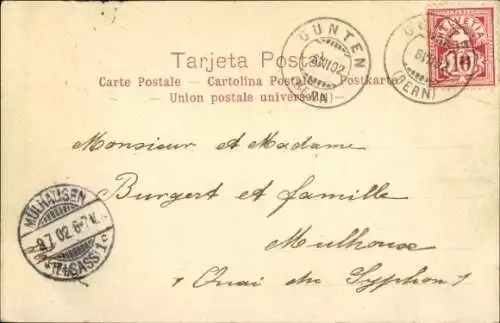 HELVETIA
10
GUNTEN
(BERN)
GUNTEN
(BERN)
Tarjeta Postal
Carte Postale — Cartolina Postale — Postkarte
— Union postale universelle —
Monsieur et Madame
Burgert et famille
Mulhouse
1 Quai du Syphon 1
MÜLHAUSEN
9.7.02.6-7N.
(ELSASS) 1 c